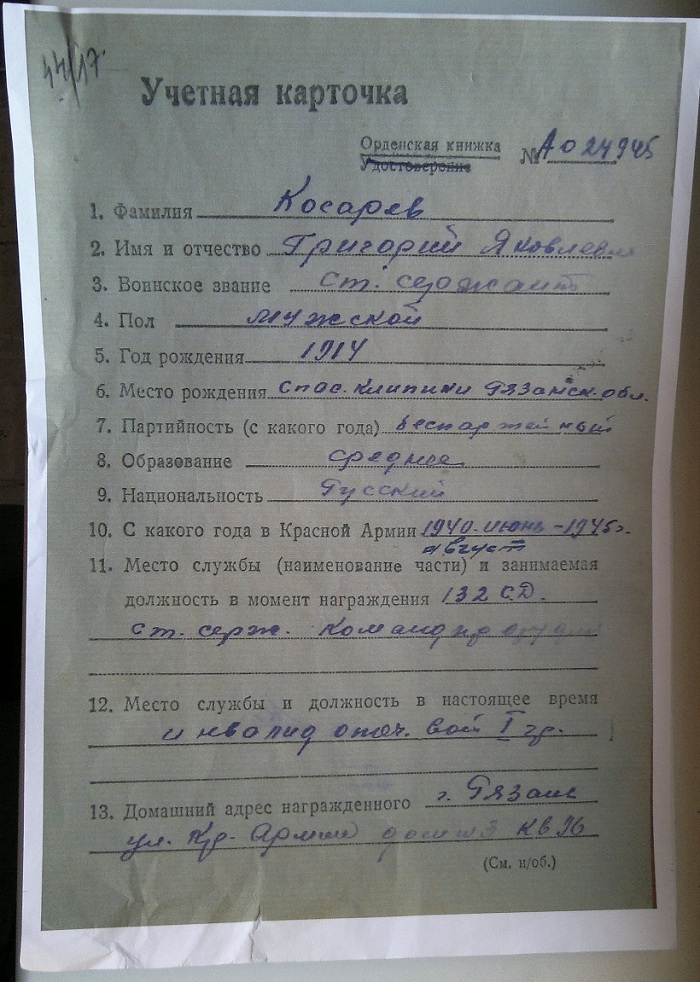 44/17.
Учетная карточка
Орденская книжка
Удостоверение
№ А 024945
1. Фамилия Косарев
2. Имя и отчество Григорий Яковлевич
3. Воинское звание ст. сержант
4. Пол мужской
5. Год рождения 1914
6. Место рождения Спас. Клипики Рязанск. обл.
7. Партийность (с какого года) беспартейный
8. Образование среднее
9. Национальность Русский
10. С какого года в Красной Армии 1940. июнь - 1945 г.
август
11. Место службы (наименование части) и занимаемая
должность в момент награждения 132 С.Д.
ст. серж. Командир орудия
12. Место службы и должность в настоящее время
инвалид отеч. вой I гр.
13. Домашний адрес награжденного г. Рязань
ул. Кр. Армии дом кв 36
(См. н/об.)